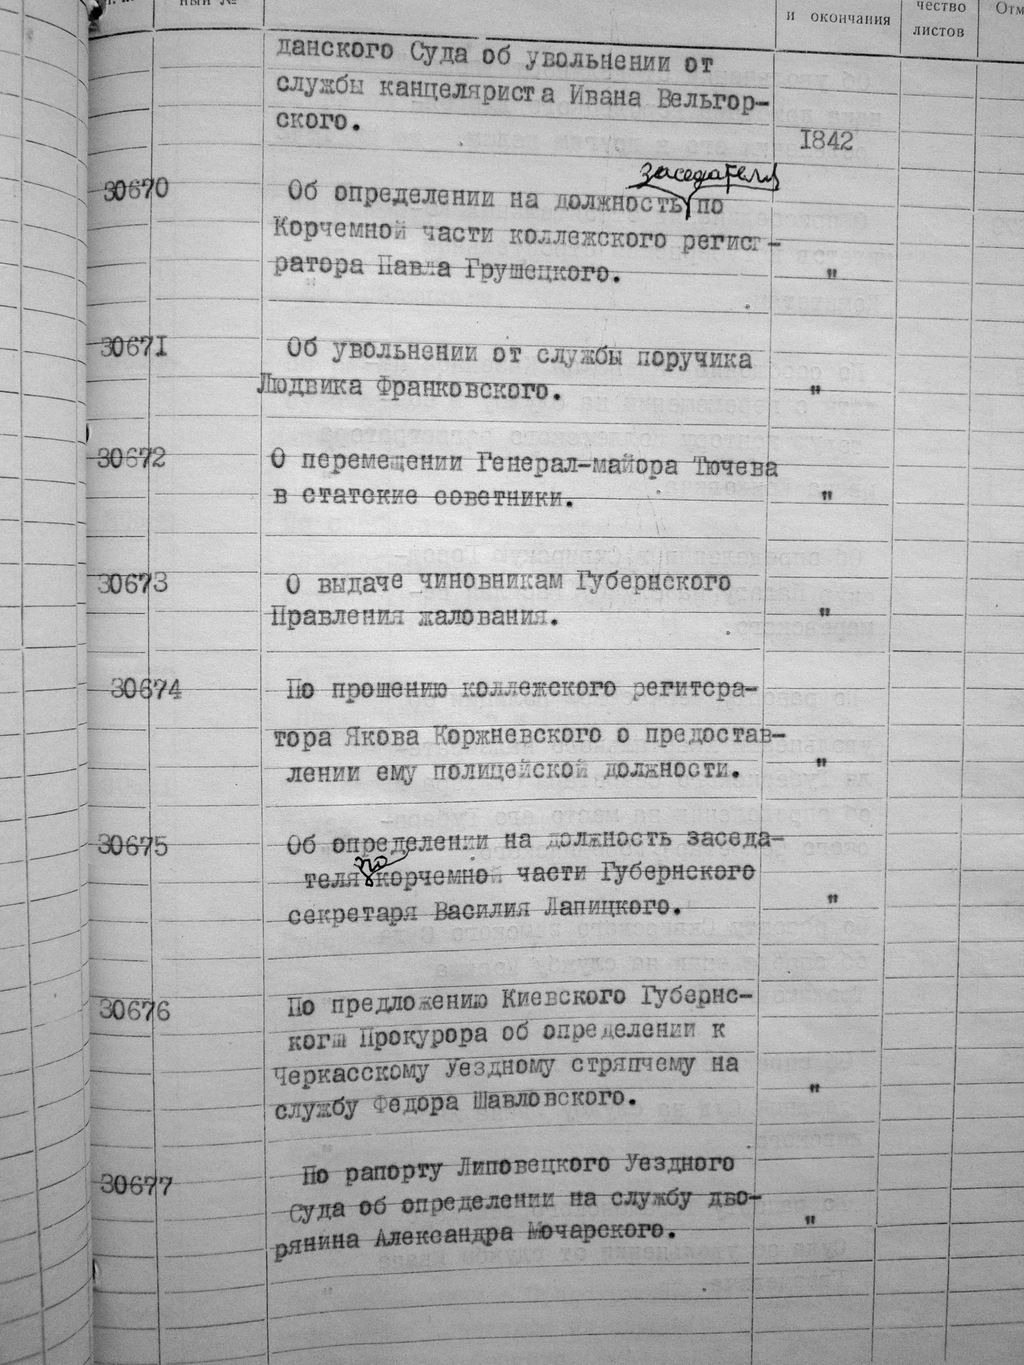 ный №
и окончания
чество
листов
Отм
данского Суда об увольнении от
службы канцеляриста Ивана Вельгор-
ского.
1842
30670
Об определении на должность заседателя по
Корчемной части коллежского регист-
ратора Павла Грушецкого.
"
30671
Об увольнении от службы поручика
Людвика Франковского.
"
30672
О перемещении Генерал-майора Тючева
в статские советники.
"
30673
О выдаче чиновникам Губернского
Правления жалования.
"
30674
По прошению коллежского регитсра-
тора Якова Коржневского о предостав-
лении ему полицейской должности.
"
30675
Об определении на должность заседа-
теля по корчемной части Губернского
секретаря Василия Лапицкого.
"
30676
По предложению Киевского Губернс-
кого Прокурора об определении к
Черкасскому Уездному стряпчему на
службу Федора Шавловского.
"
30677
По рапорту Липовецкого Уездного
Суда об определении на службу дво-
рянина Александра Мочарского.
"